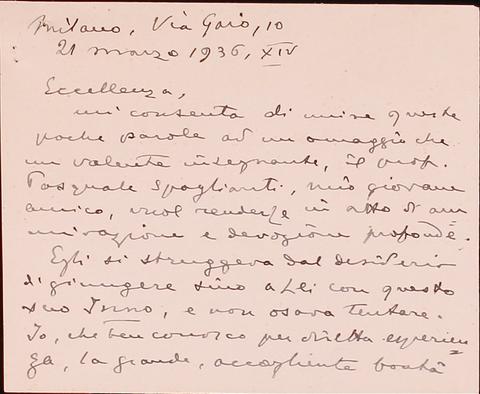 Milano, Via Gaio, 10
21 marzo 1936, XIV
Eccellenza,
mi consenta di unire queste
poche parole ad un omaggio che
un valente insegnante, il prof.
Pasquale Spoglianti, mio giovane
amico, vuol renderle in atto di am
mirazione e devozione profonde.
Egli si struggeva dal desiderio
di giungere sino a Lei con questo
suo Inno, e non osava tentare.
Io, che ben conosco per diretta esperien
za, la grande, accogliente bontà